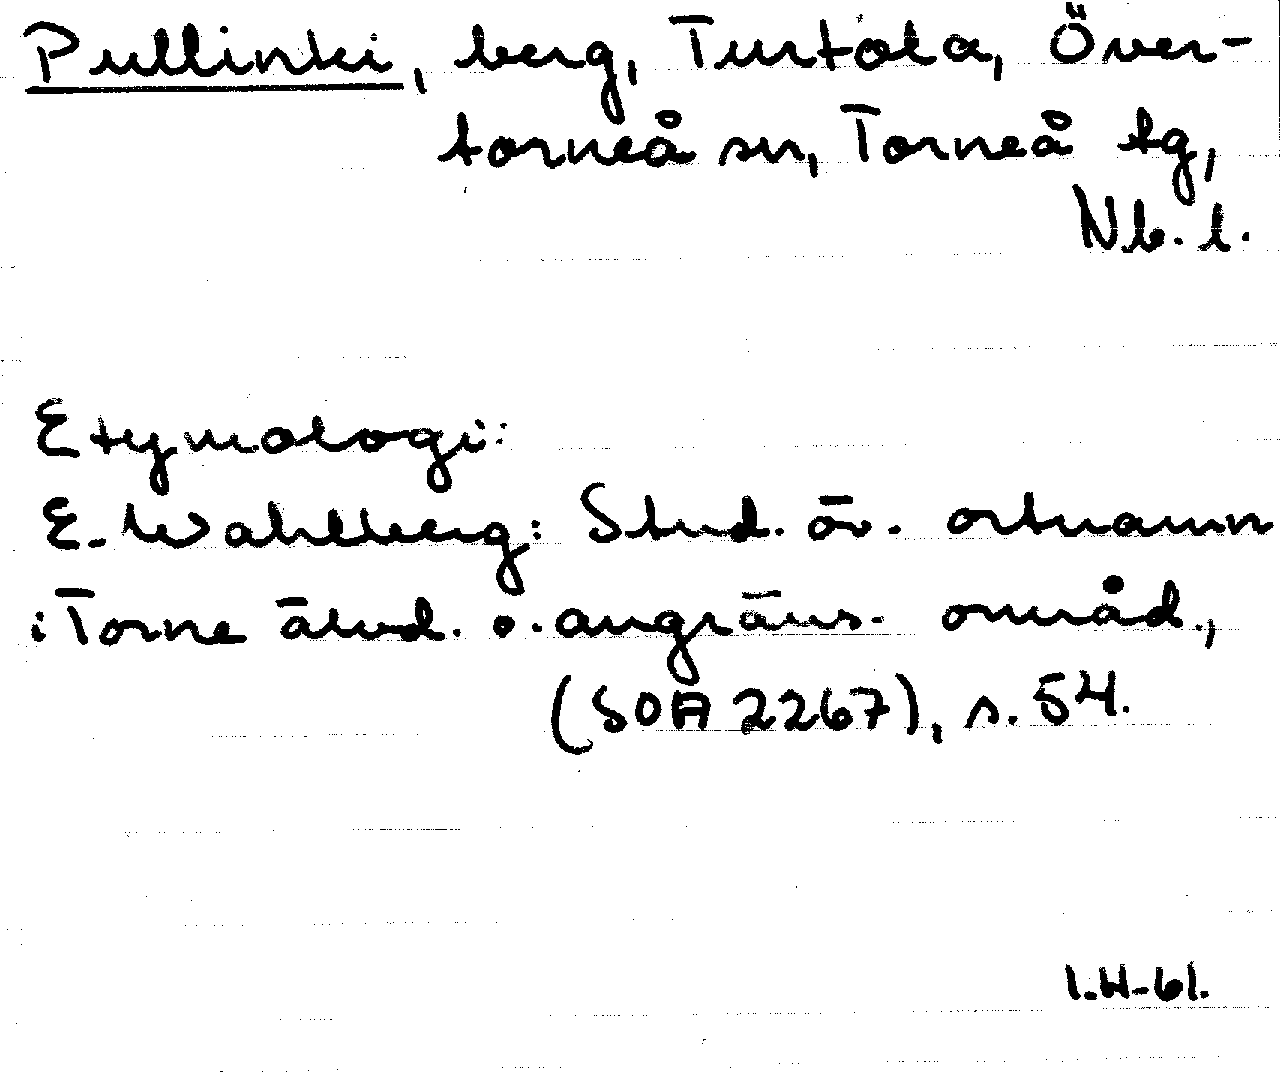 Pullinki, berg, Turtola, Över-
torneå sn, Torneå tg,
Nb. l.
Etymologi:
E. Wahlberg: Stud. öv. ortnamn
i Torne älvd. o. angräns. områd.,
(SOA 2267), s. 54.
I.H-61.